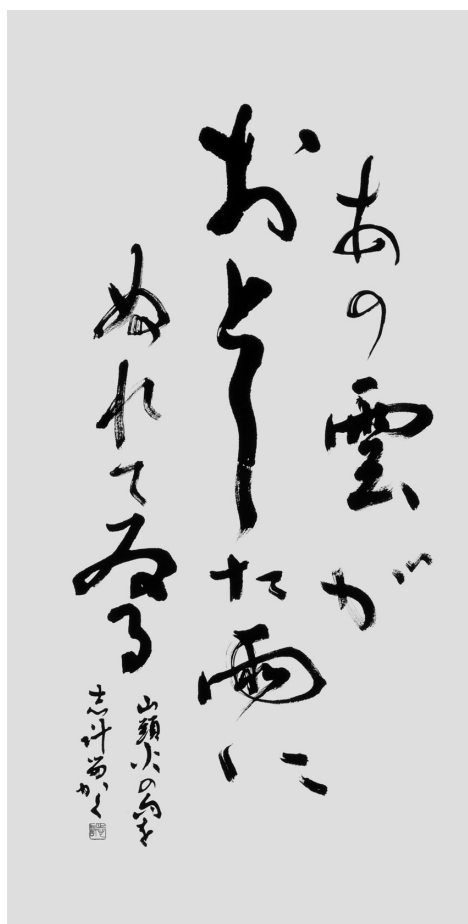 あの雲が
おとした雨に
ぬれてゐる
山頭火の句を
かく